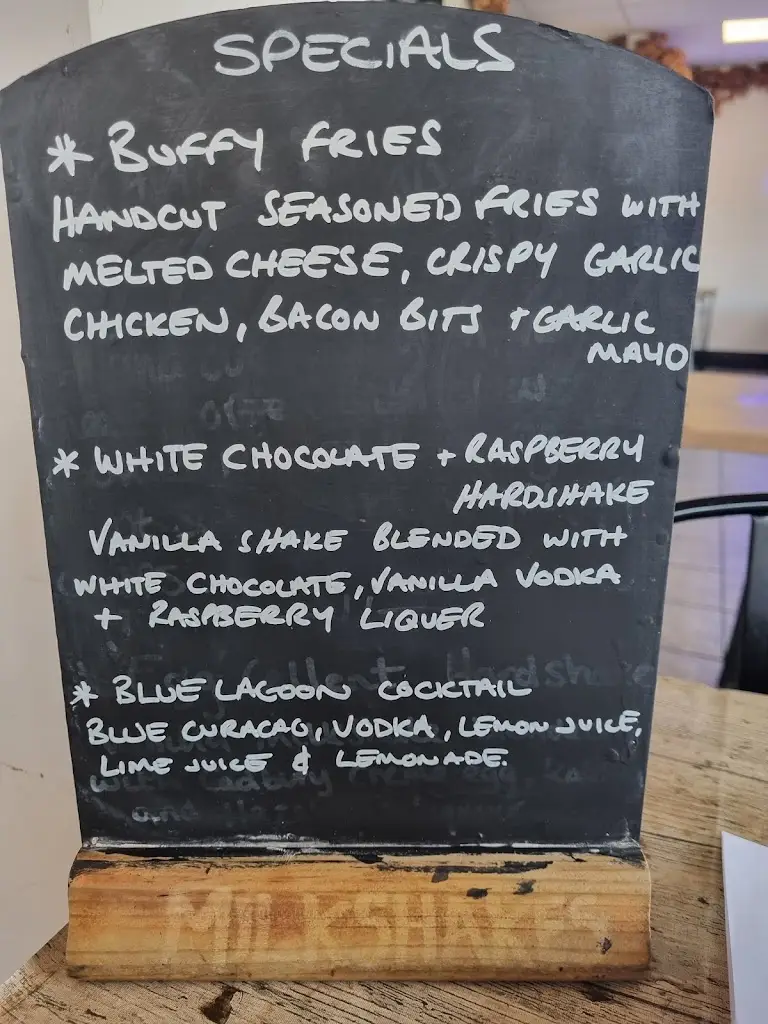 SPECIALS
* BUFFY FRIES
HANDCUT SEASONED FRIES WITH
MELTED CHEESE, CRISPY GARLIC
CHICKEN, BACON BITS + GARLIC
MAYO
* WHITE CHOCOLATE + RASPBERRY
HARDSHAKE
VANILLA SHAKE BLENDED WITH
WHITE CHOCOLATE, VANILLA VODKA
+ RASPBERRY LIQUER
* BLUE LAGOON COCKTAIL
BLUE CURACAO, VODKA, LEMON JUICE,
LIME JUICE & LEMONADE.
MILKSHAKES